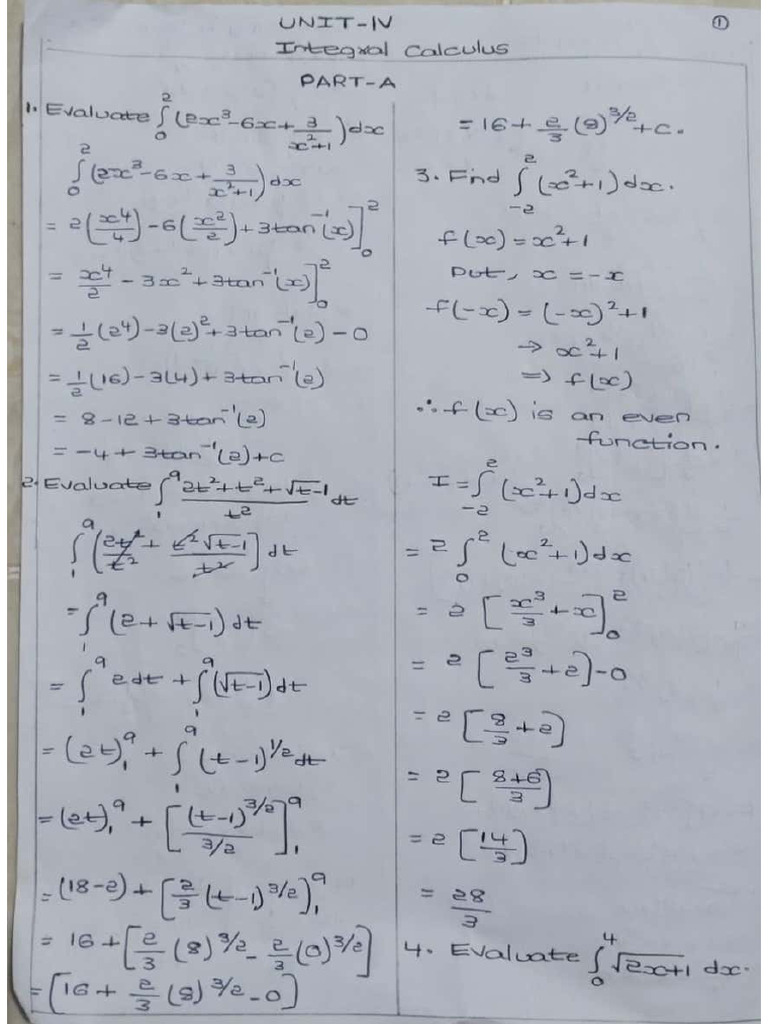 ①
UNIT-IV
Integral Calculus
PART-A
1. Evaluate ∫₀² (2x³-6x+3/(x²+1))dx
∫₀² (2x³-6x+3/(x²+1))dx
= 2(x⁴/4)-6(x²/2)+3tan⁻¹(x)]₀²
= x⁴/2 - 3x²+3tan⁻¹(x)]₀²
= 1/2(2⁴)-3(2)²+3tan⁻¹(2)-0
= 1/2(16)-3(4)+3tan⁻¹(2)
= 8-12+3tan⁻¹(2)
= -4+3tan⁻¹(2)+c
2. Evaluate ∫₁⁹ (2t²+t²+√t-1)/t² dt
∫₁⁹ (2t²/t² + t²√t-1/t²] dt
= ∫₁⁹ (2+√t-1) dt
= ∫₁⁹ 2dt + ∫₁⁹ (√t-1)dt
= (2t)₁⁹ + ∫₁⁹ (t-1)^1/2 dt
= (2t)₁⁹ + [(t-1)^3/2 / 3/2]₁⁹
= (18-2)+[2/3 (t-1)^3/2)₁⁹
= 16+[2/3 (8)^3/2 - 2/3 (0)^3/2]
= [16+ 2/3 (8)^3/2 -0]
= 16+ 2/3 (8)^3/2 +c.
3. Find ∫₋₂² (x²+1)dx.
f(x)=x²+1
put, x=-x
f(-x)=(-x)²+1
→ x²+1
=> f(x)
∴ f(x) is an even
function.
I=∫₋₂² (x²+1)dx
= 2∫₀² (x²+1)dx
= 2 [x³/3+x]₀²
= 2 [2³/3+2)-0
= 2 [8/3+2)
= 2 [8+6/3]
= 2 [14/3]
= 28/3
4. Evaluate ∫₀⁴ √2x+1 dx.